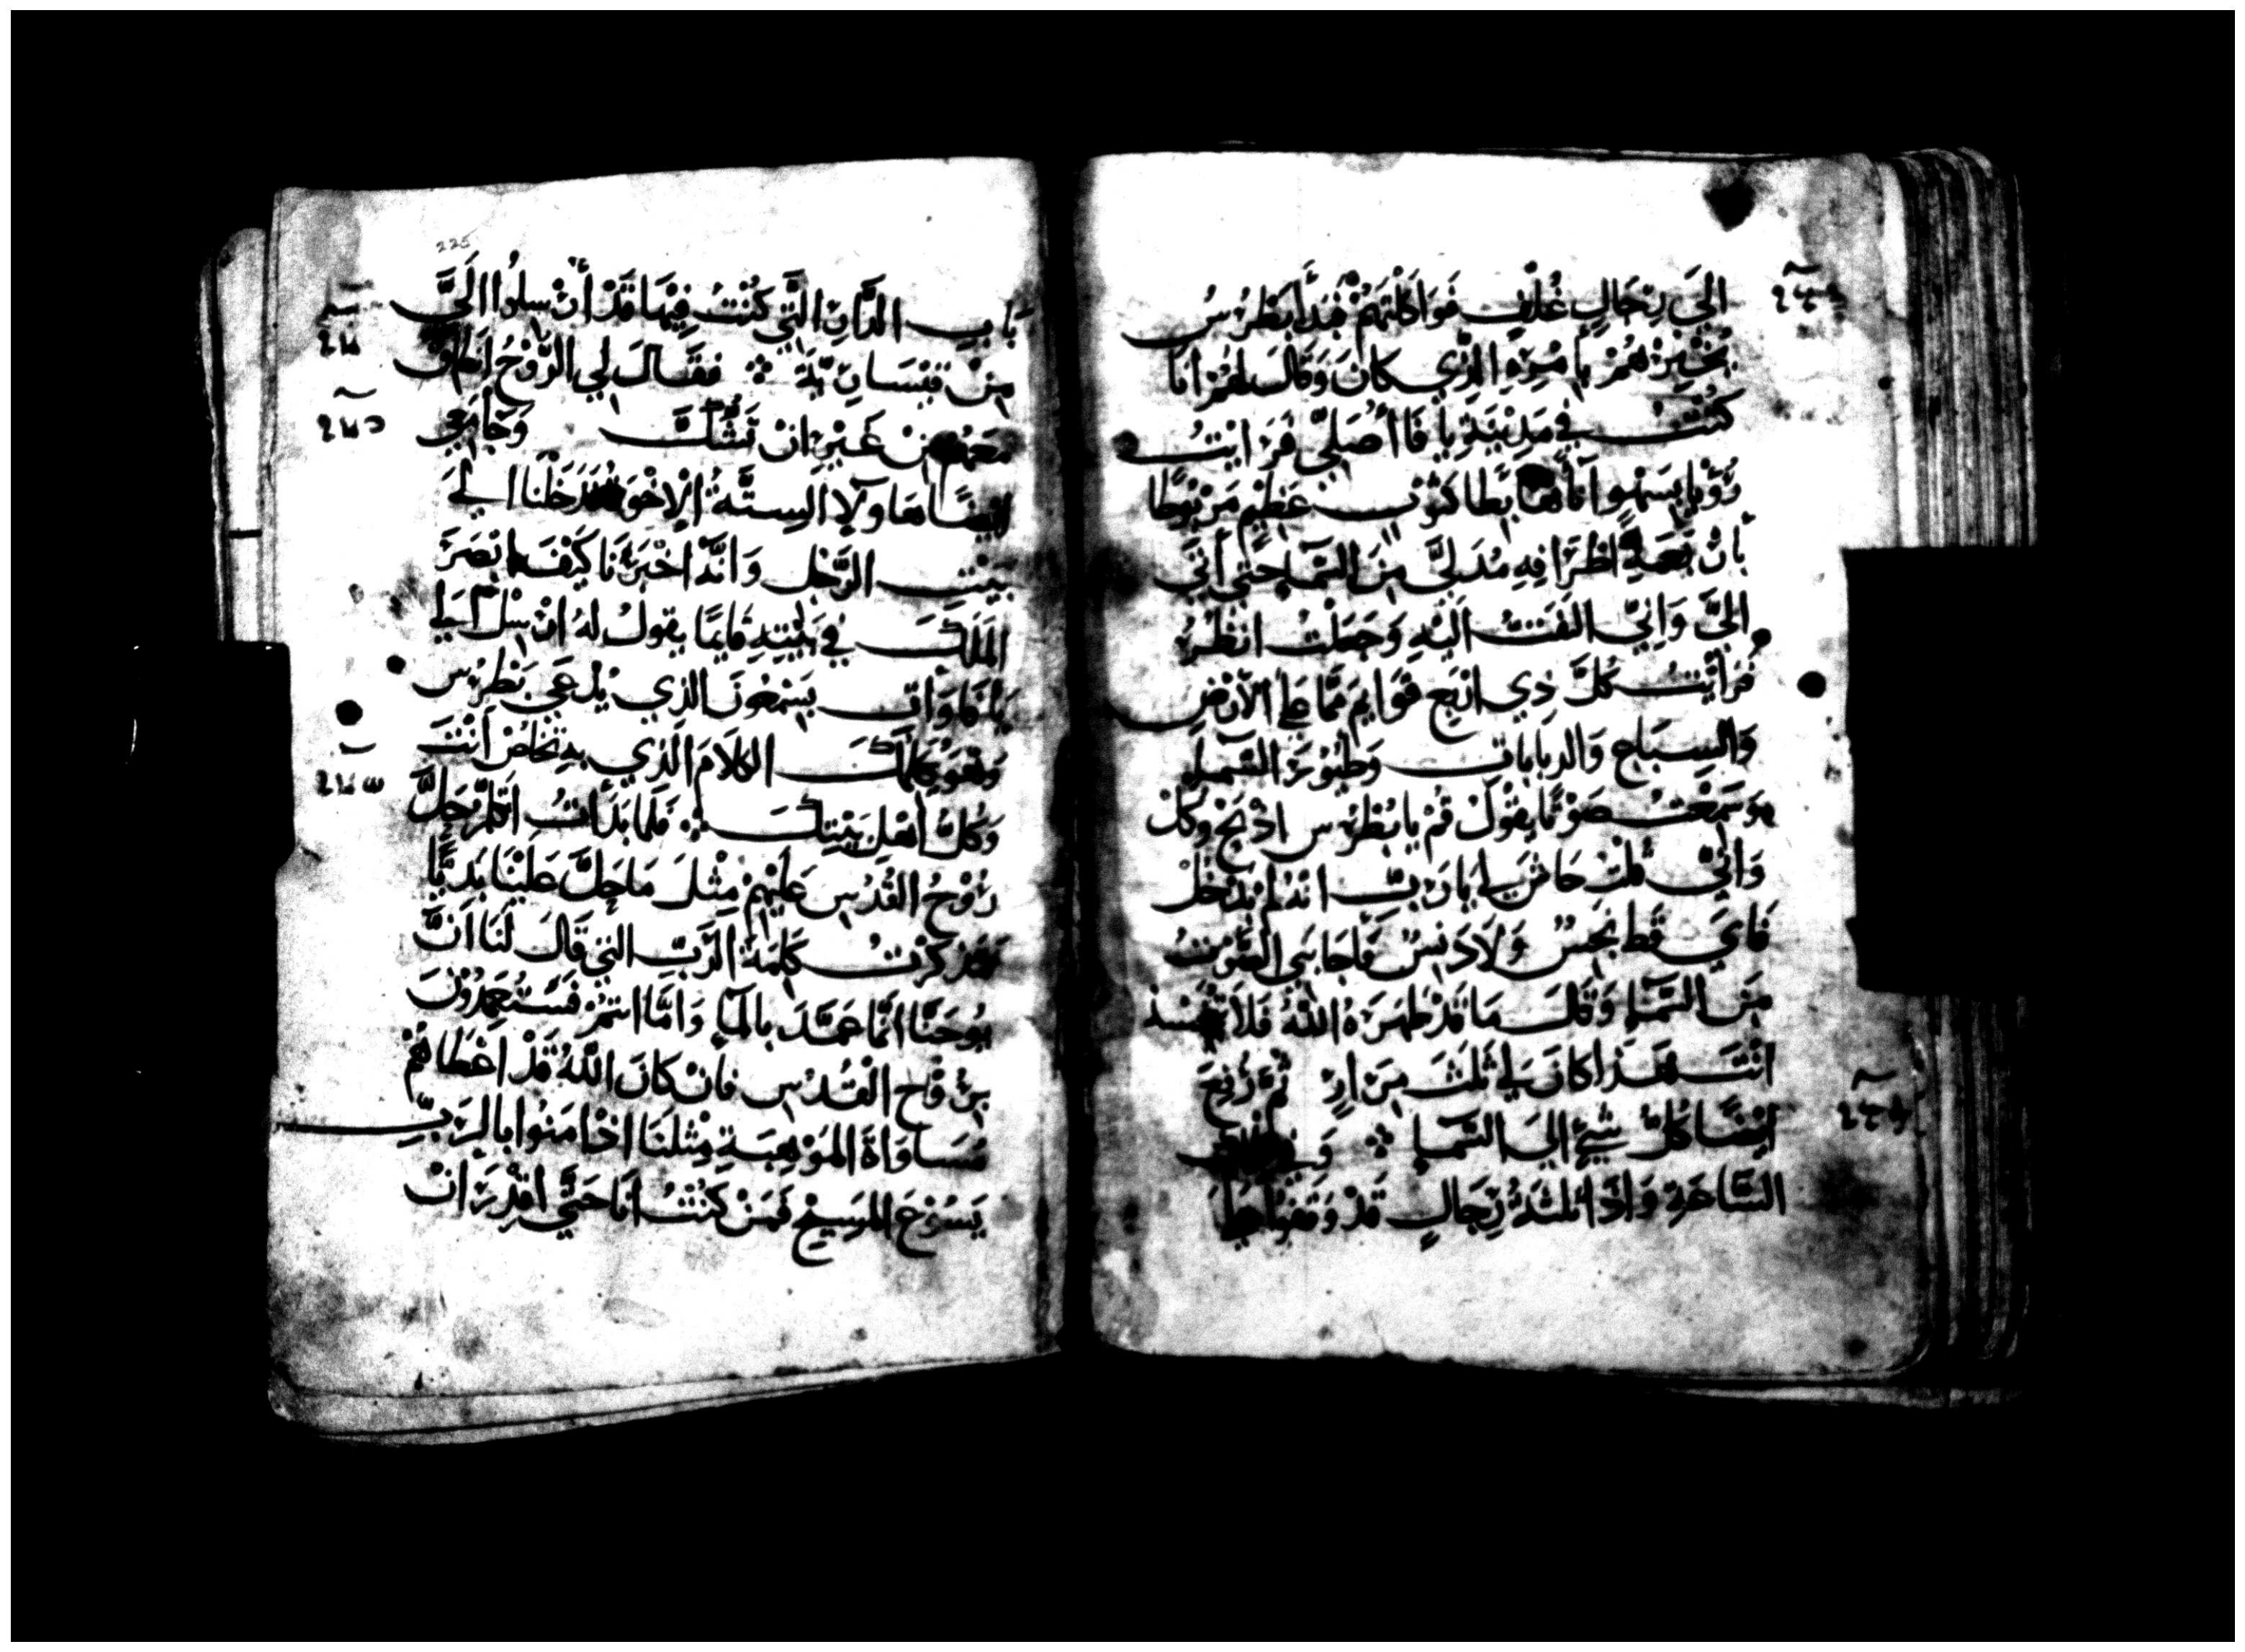 الَي رِجَالٍ غُلْفٍ فَوَاكَلْتَهُمْ فَبَدَأَ بَطْرُسُ
يُخْبِرُهُمْ بِأمْرِهِ الذِّي كَانَ وَقَالَ لهُمْ انَا
كُنْتُ فِي مَدِيْنَةِ يَافَا أُصَلِّي فَرَايْتُ
رُؤْيَا بِسَهْوٍ انَّاءً هَابِطًا كثَوْبٍ عَظِيْمٍ مَرْبُوطًا
بأرْبَعَةِ اطْرَافِهِ مُدَلَّى مِنَ السَّمَاءِ حتَّي أتَي
الَيَّ وَانِّي التَفَتُّ الَيْهِ وَجَعَلْتُ انْظُرُ
فَرَأيْتُ كُلَّ ذِي ارْبَعِ قَوَايِمَ مِمَّا عَلَي الأَرْضِ
وَالسِبَاعِ وَالدبابَاتِ وَطُيُوْرَ السَّمَاءِ
وَسَمِعْتُ صَوْتًا يَقُوْلُ قُمْ يَا بُطْرُس اذْبَحْ وَكُلْ
وَانِّي قُلْتُ حَاشَ لِي يَارَبِّ انهُ لمْ يَدْخُلْ
فَايَ قَط نجِسٌ وَلَا دَنِسٌ فَأجَابَنِي الصَّوْتُ
مِنَ السَّمَاءِ وَقَالَ مَا قَدْ طَهَرَهُ اللهُ فَلَا
انْتَ هَذَا كَانَ لِي ثَلَثَ مِرَارٍ ثُمَّ رُفِعَ
ايْضًا كُلُّ شَيْءٍ الَي السَّمَاءِ وَفِي
السَّاعَةِ وَاذَا ثلثَةُ رِجَالٍ قَدْ وَقَفُوا عَلَي
بَابِ الدَّارِ الَّتِي كُنْتُ فِيْهَا قَدْ أُرْسِلُوا الَيَّ
مِنْ قيْسَارِيَّةَ فقَالَ لِي الرُّوْحُ انْطَلِقْ
مَعَهُمْ مِنْ غَيْرِ انْ تَشُكَّ وَجَا مَعِي
ايْضًا هَاولَاءِ السِتَّةُ الْاِخْوَةُ فَدَخَلْنَا الَي
بَيْتِ الرَّجُلِ وَانَّهُ اخْبَرَنَا كَيْفَ ابْصَرَ
المَلَكَ فِي بَيْتِهِ قَايِمًا يقوْلُ لهُ ارْسِلْ الَي
يَافَا وَاتِ بِسَمْعُونَ الذِي يُدْعَي بَطْرُس
وَهُوَ يُكَلِّمُكَ الكَلَامَ الَّذِي بهِ تخْلصُ أنْتَ
وَكُلُّ أهْلِ بَيْتِكَ فَلَمَّا بَدَأتُ اتَكَلَّمُ حَلَّ
رُوْحُ القُدُسِ عَلَيْهِمْ مِثْلَ مَا حَلَّ عَلَيْنَا بَدِيًّا
فَذَكَرْتُ كَلِمَةَ الرَّبِّ التي قَالَ لَنَا انَّ
يُوحَنَّا انَّمَا عَمَّدَ بالمَاءِ وَامَّا انتُمْ فَسَتُعَمَّدُوْنَ
بِرُوْحِ الْقُدُسِ فَانْ كَانَ اللَّهُ قَدْ اعْطَاهُمْ
مُسَاوَاةَ المَوْهِبَةِ مِثْلَنَا اذْ امَنُوا بالرَبِّ
يَسُوْعَ المَسِيْحِ فَمَنْ كُنْتُ انَا حَتَّي اقْدِرَ انْ
225